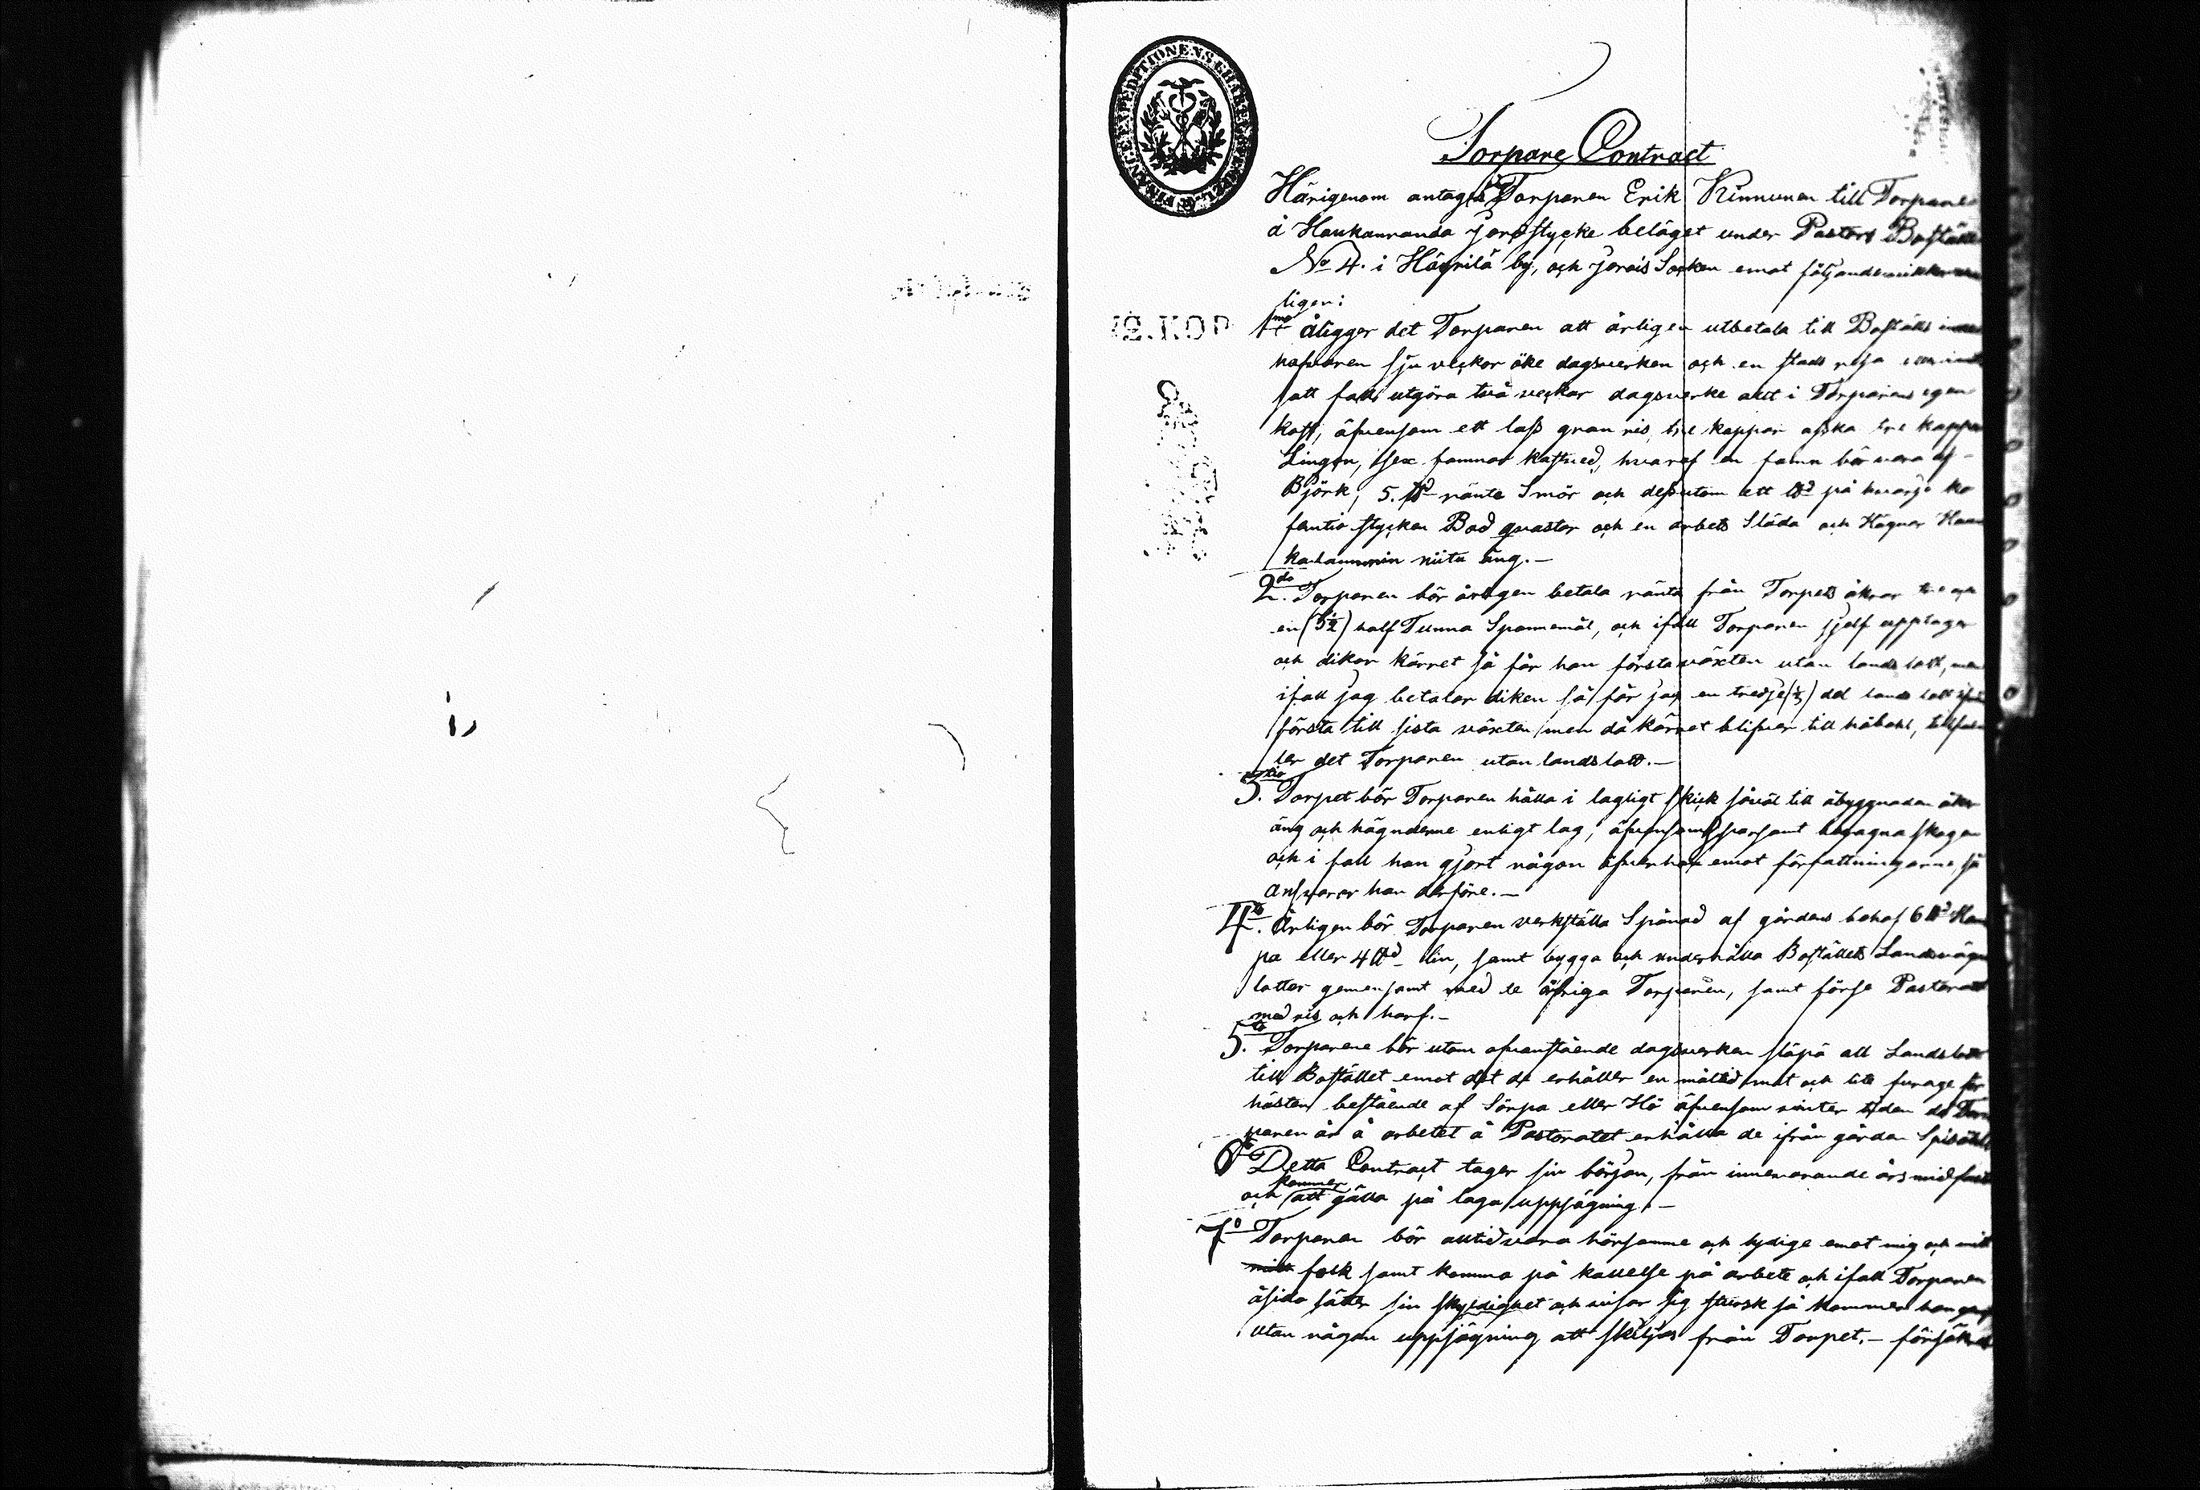 FINANCE EXPEDITIONENS CHARTÆ
12.KOP
Torpare Contract
Härigenom antages Torparen Erik Kinnunen till Torpare
å Haukanranda jordstycke beläget under Pastors Boställe
No 4. i Häyrilä by, och Jorois Socken emot följande
ligen:
1mo åligger det Torparen att årligen utbetala till Boställs
hafvaren sju veckor öke dagsverken och en stads resa
fall utgöra två veckor dagsverke allt i Torparens egen
kost, äfvensom ett lass gran ris, tre kappar aska tre kappar
Lingon, sex famnar kastved, hvaraf en famn bör vara af
Björk, 5. ränte Smör och dessutom ett på hvarje ko
femtio stycken Bad qvastar och en arbets Släda och Hägnar
niitu äng.—
2do. Torparen bör årligen betala ränta från Torpets åkrar tre och
en (3½) half Tunna Spannemål, och ifall Torparen sjelf upptager
och dikar kärret så får han första växten utan lands lott, men
ifall jag betalar diken så får jag en tredje (⅓) del lands lott
första till sista växten men då kärret blifver till höbohl,
ler det Torparen utan landslott.—
3tio. Torpet bör Torparen hålla i lagligt skick såväl till åbyggnaden åker
äng och hägnderne enligt lag, äfvensom sparsamt begagna skogen
och i fall han gjort någon åfverkan emot författningarne, så
ansvarar han derföre.—
4to. Årligen bör Torparen verkställa Spånad af gårdens behof 6 Ham
pa eller 4 lin, samt bygga och underhålla Boställets Landsvägs
lotter gemensamt med de öfriga Torparen, samt förse Pastoratet
med ris och harf.—
5to. Torparene bör utom ofvanstående dagsverken släpa all Landslott
till Bostället emot det de erhåller en måltid mat och lite furage för
hästen bestående af Sörpa eller Hö äfvensom vinter tiden då Tor
paren är å arbetet å Pastoratet erhålla de ifrån gården
6to Detta Contract tager sin början, från innevarande års
kommer
och att gälla på laga uppsägning.—
7o Torparen bör alltid vara hörsamme och lydige emot mig och mitt
folk samt komma på kallelse på arbete och ifall Torparen
åsido sätter sin skyldighet och visar sig stursk så kommer han
utan någon uppsägning att skiljas från Torpet.—